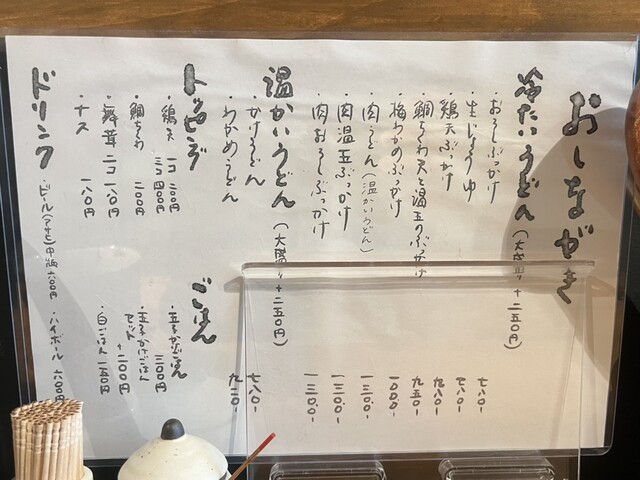 おしながき
冷たいうどん (大盛り+二五〇円)
・おろしぶっかけ 七八〇-
・生じょうゆ 七八〇-
・鶏天ぶっかけ 九八〇-
・鯛ちくわ天と温玉のぶっかけ 九五〇-
・梅わかめぶっかけ 一〇〇〇-
・肉うどん(温かいうどん) 一三〇〇-
・肉温玉ぶっかけ 一三〇〇-
・肉おろしぶっかけ 一三〇〇-
温かいうどん (大盛り+二五〇円)
・かけうどん 七八〇-
・わかめうどん
トッピング
・鶏天 一コ 二〇〇円
二コ 四〇〇円
・鯛ちくわ 二〇〇円
・舞茸 二コ 一八〇円
・ナス 一八〇円
ごはん
・玉子かけごはん 三〇〇円
・玉子かけごはん
セット +二〇〇円
・白ごはん 一五〇円
ドリンク ・ビール(アサヒ)中瓶 六〇〇円 ・ハイボール 六〇〇円